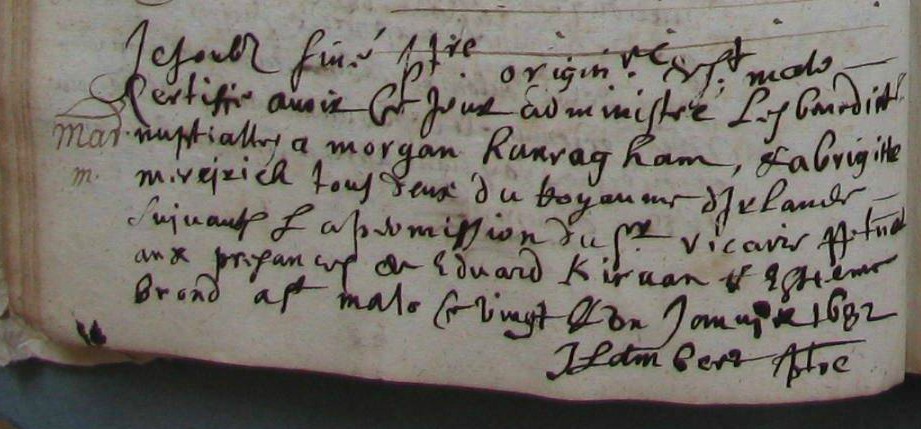 Je soubz siné ptre origin.re de St malo
Certiffie avoir Ce Jour administré Les benedict
nuptialles a morgan hanragham, & a brigitte
Mar.
m. tous deux du Royaume d'Irlande
suivant La permission du Sr vicaire
aux presances de Eduard Kirvan & Estienne
brond a St malo Ce vingt & un Janvier 1682
J Lambert ptre